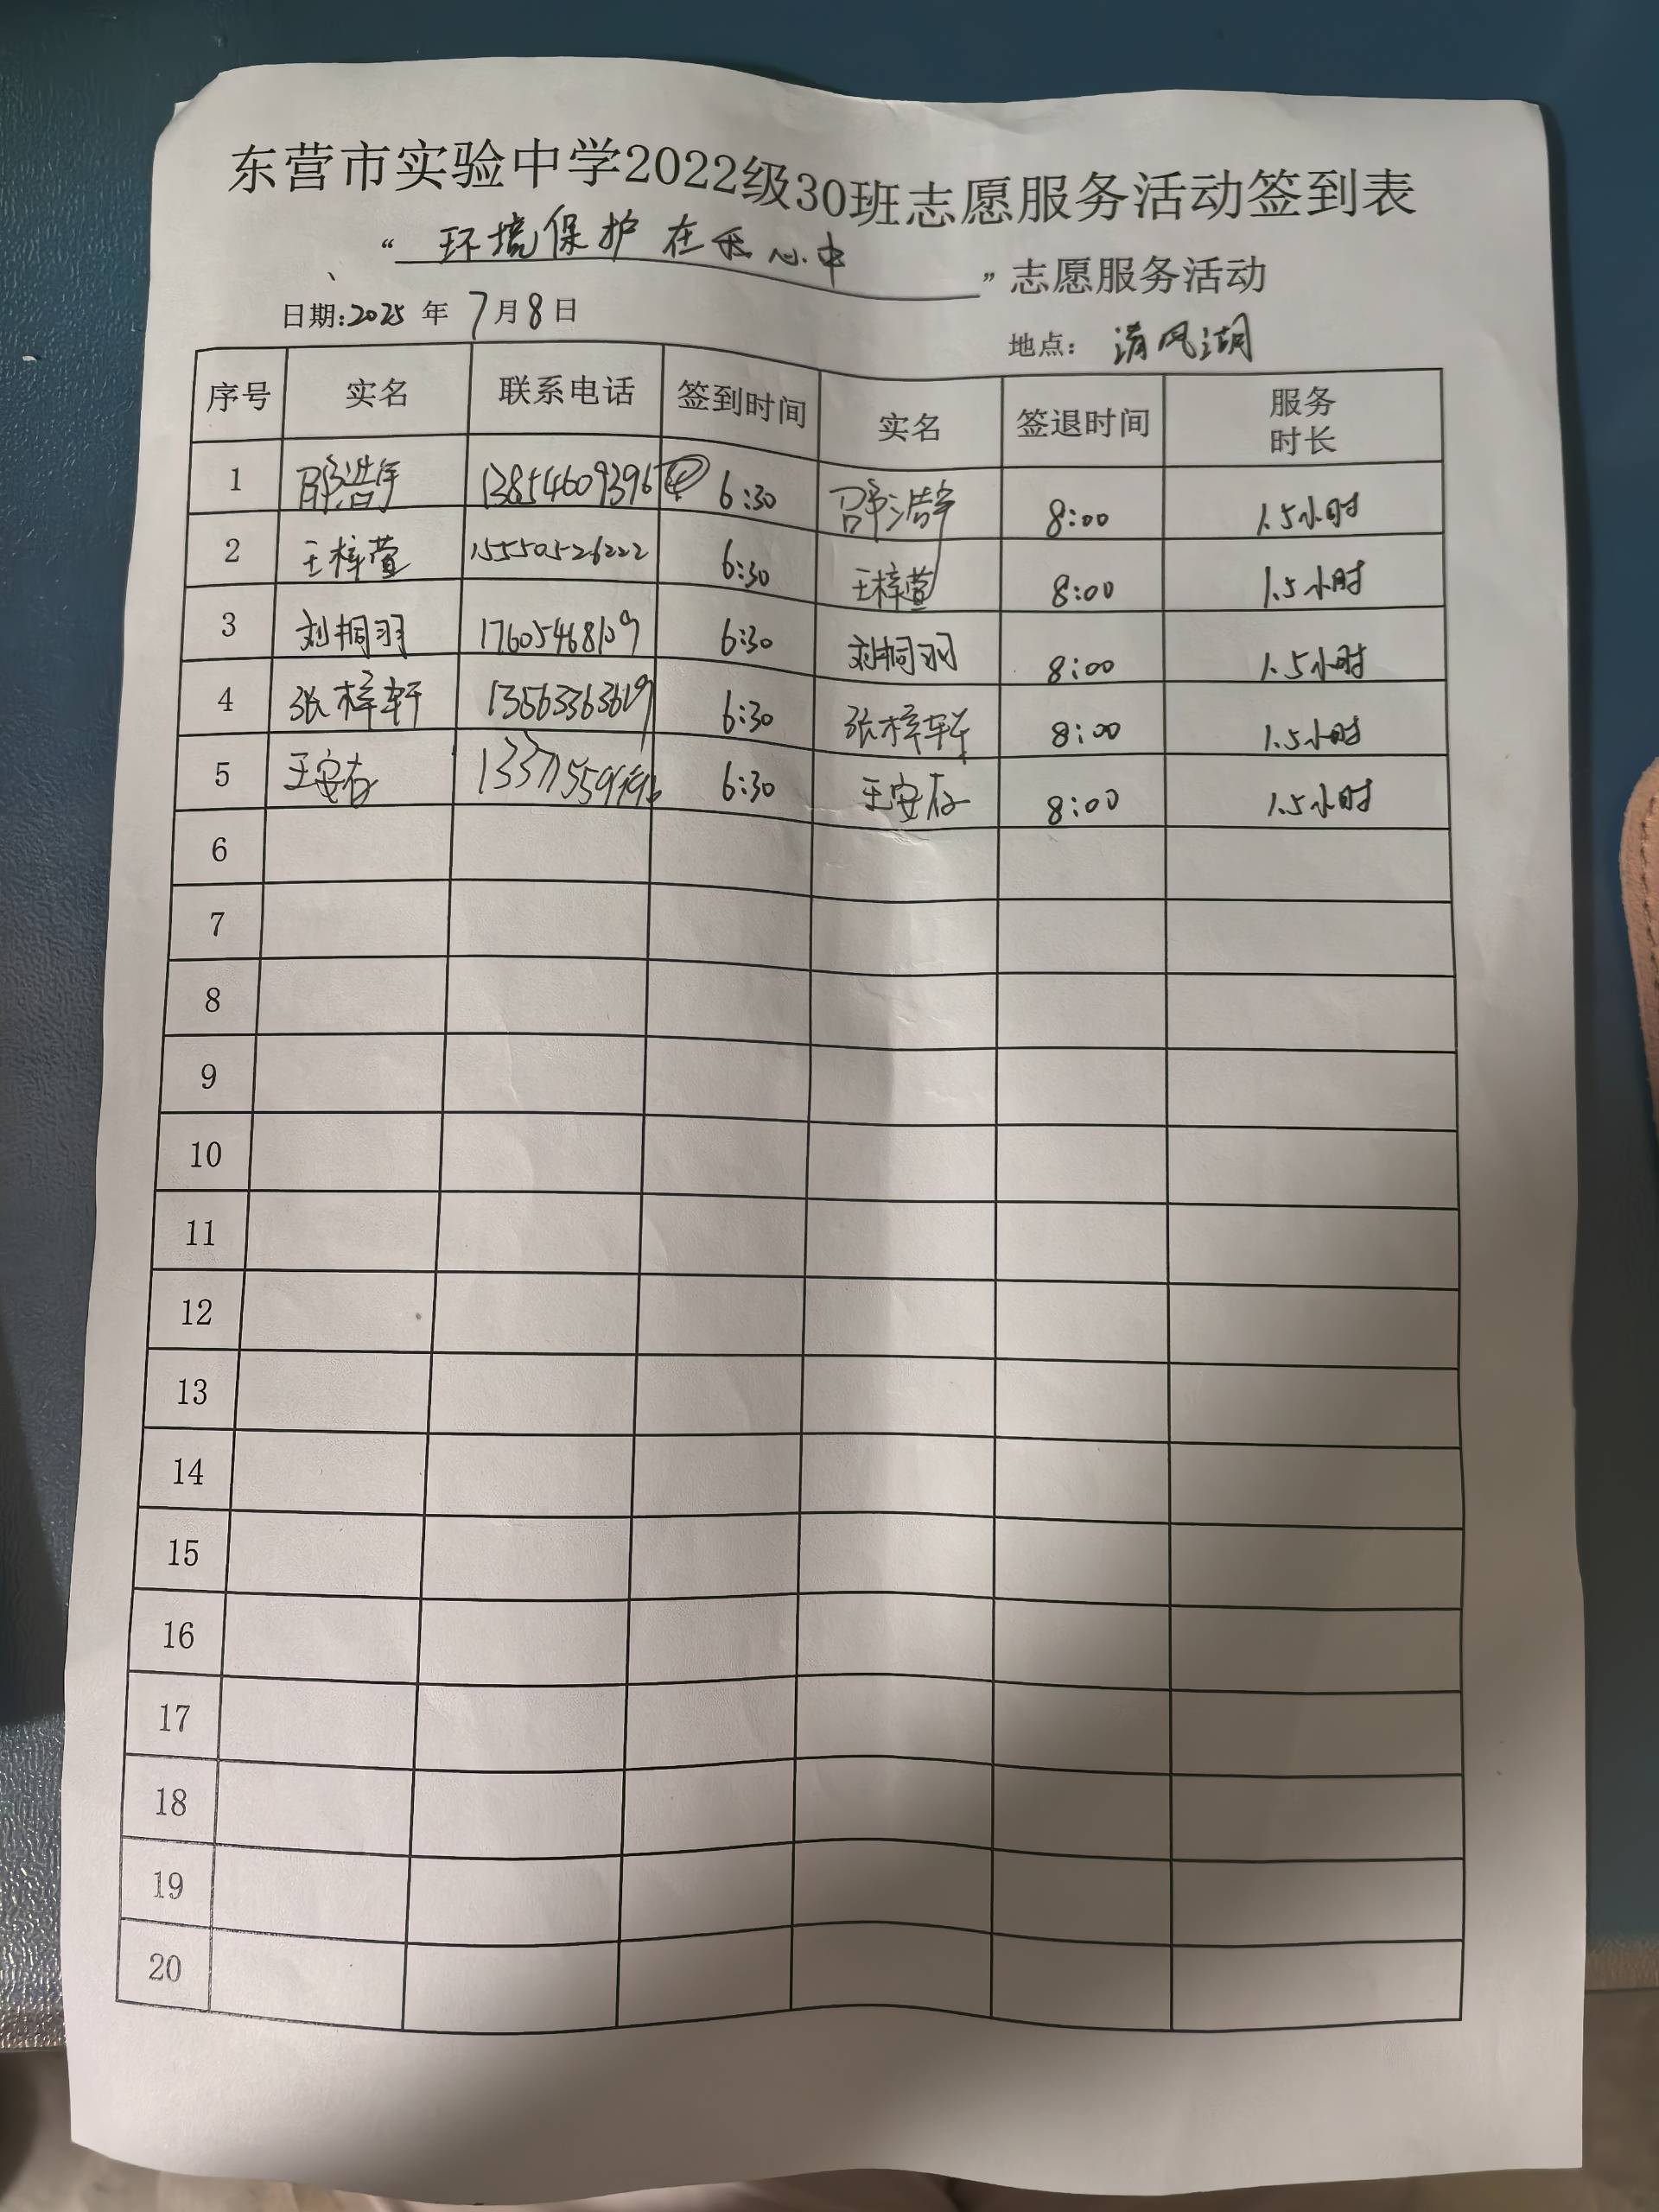 东营市实验中学2022级30班志愿服务活动签到表
“环境保护在我心中”志愿服务活动
日期:2025年7月8日 地点：清风湖
序号 实名 联系电话 签到时间 实名 签退时间 服务时长
1 邵浩宇 13854609396 6:30 邵浩宇 8:00 1.5小时
2 王梓萱 15550526222 6:30 王梓萱 8:00 1.5小时
3 刘桐羽 17605468109 6:30 刘桐羽 8:00 1.5小时
4 张梓轩 13563363619 6:30 张梓轩 8:00 1.5小时
5 王安存 6:30 王安存 8:00 1.5小时
6
7
8
9
10
11
12
13
14
15
16
17
18
19
20